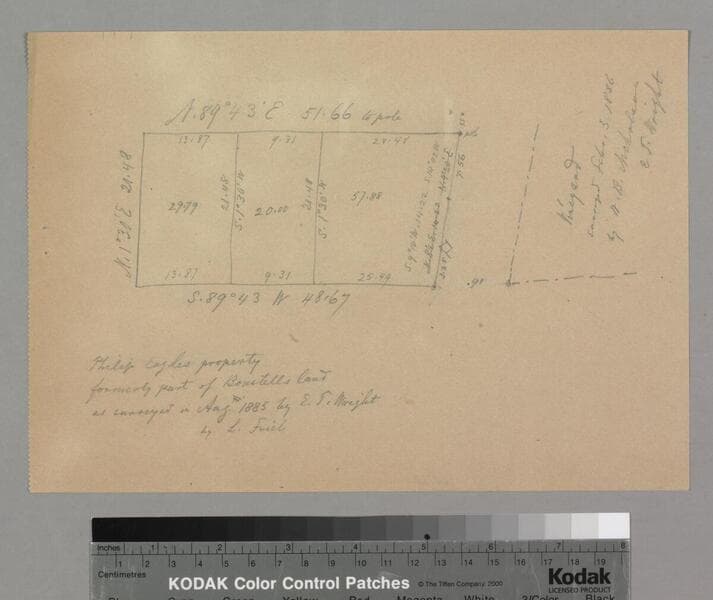 N. 89° 43' E 51.66 to pole
13.87 9.31 28.48
pole
N. 1° 30' E 21.48
29.79
21.48
S. 1° 30' W
20.00
21.48
S. 1° 30' W
57.88
7.56
13.87 9.31 25.49
S. 89° 43 W 48.67
Philip Eagles property
formerly part of Bonstells land
as surveyed in Aug 1885 by E. T. Wright
by L. Friel
surveyed Febr. 5. 1886
by A. B. Nicholson
E T. Wright
Inches 1 2 3 4 5 6 7 8
Centimetres 1 2 3 4 5 6 7 8 9 10 11 12 13 14 15 16 17 18 19
KODAK Color Control Patches © The Tiffen Company, 2000
Kodak
LICENSED PRODUCT
Blue Cyan Green Yellow Red Magenta White 3/Color Black